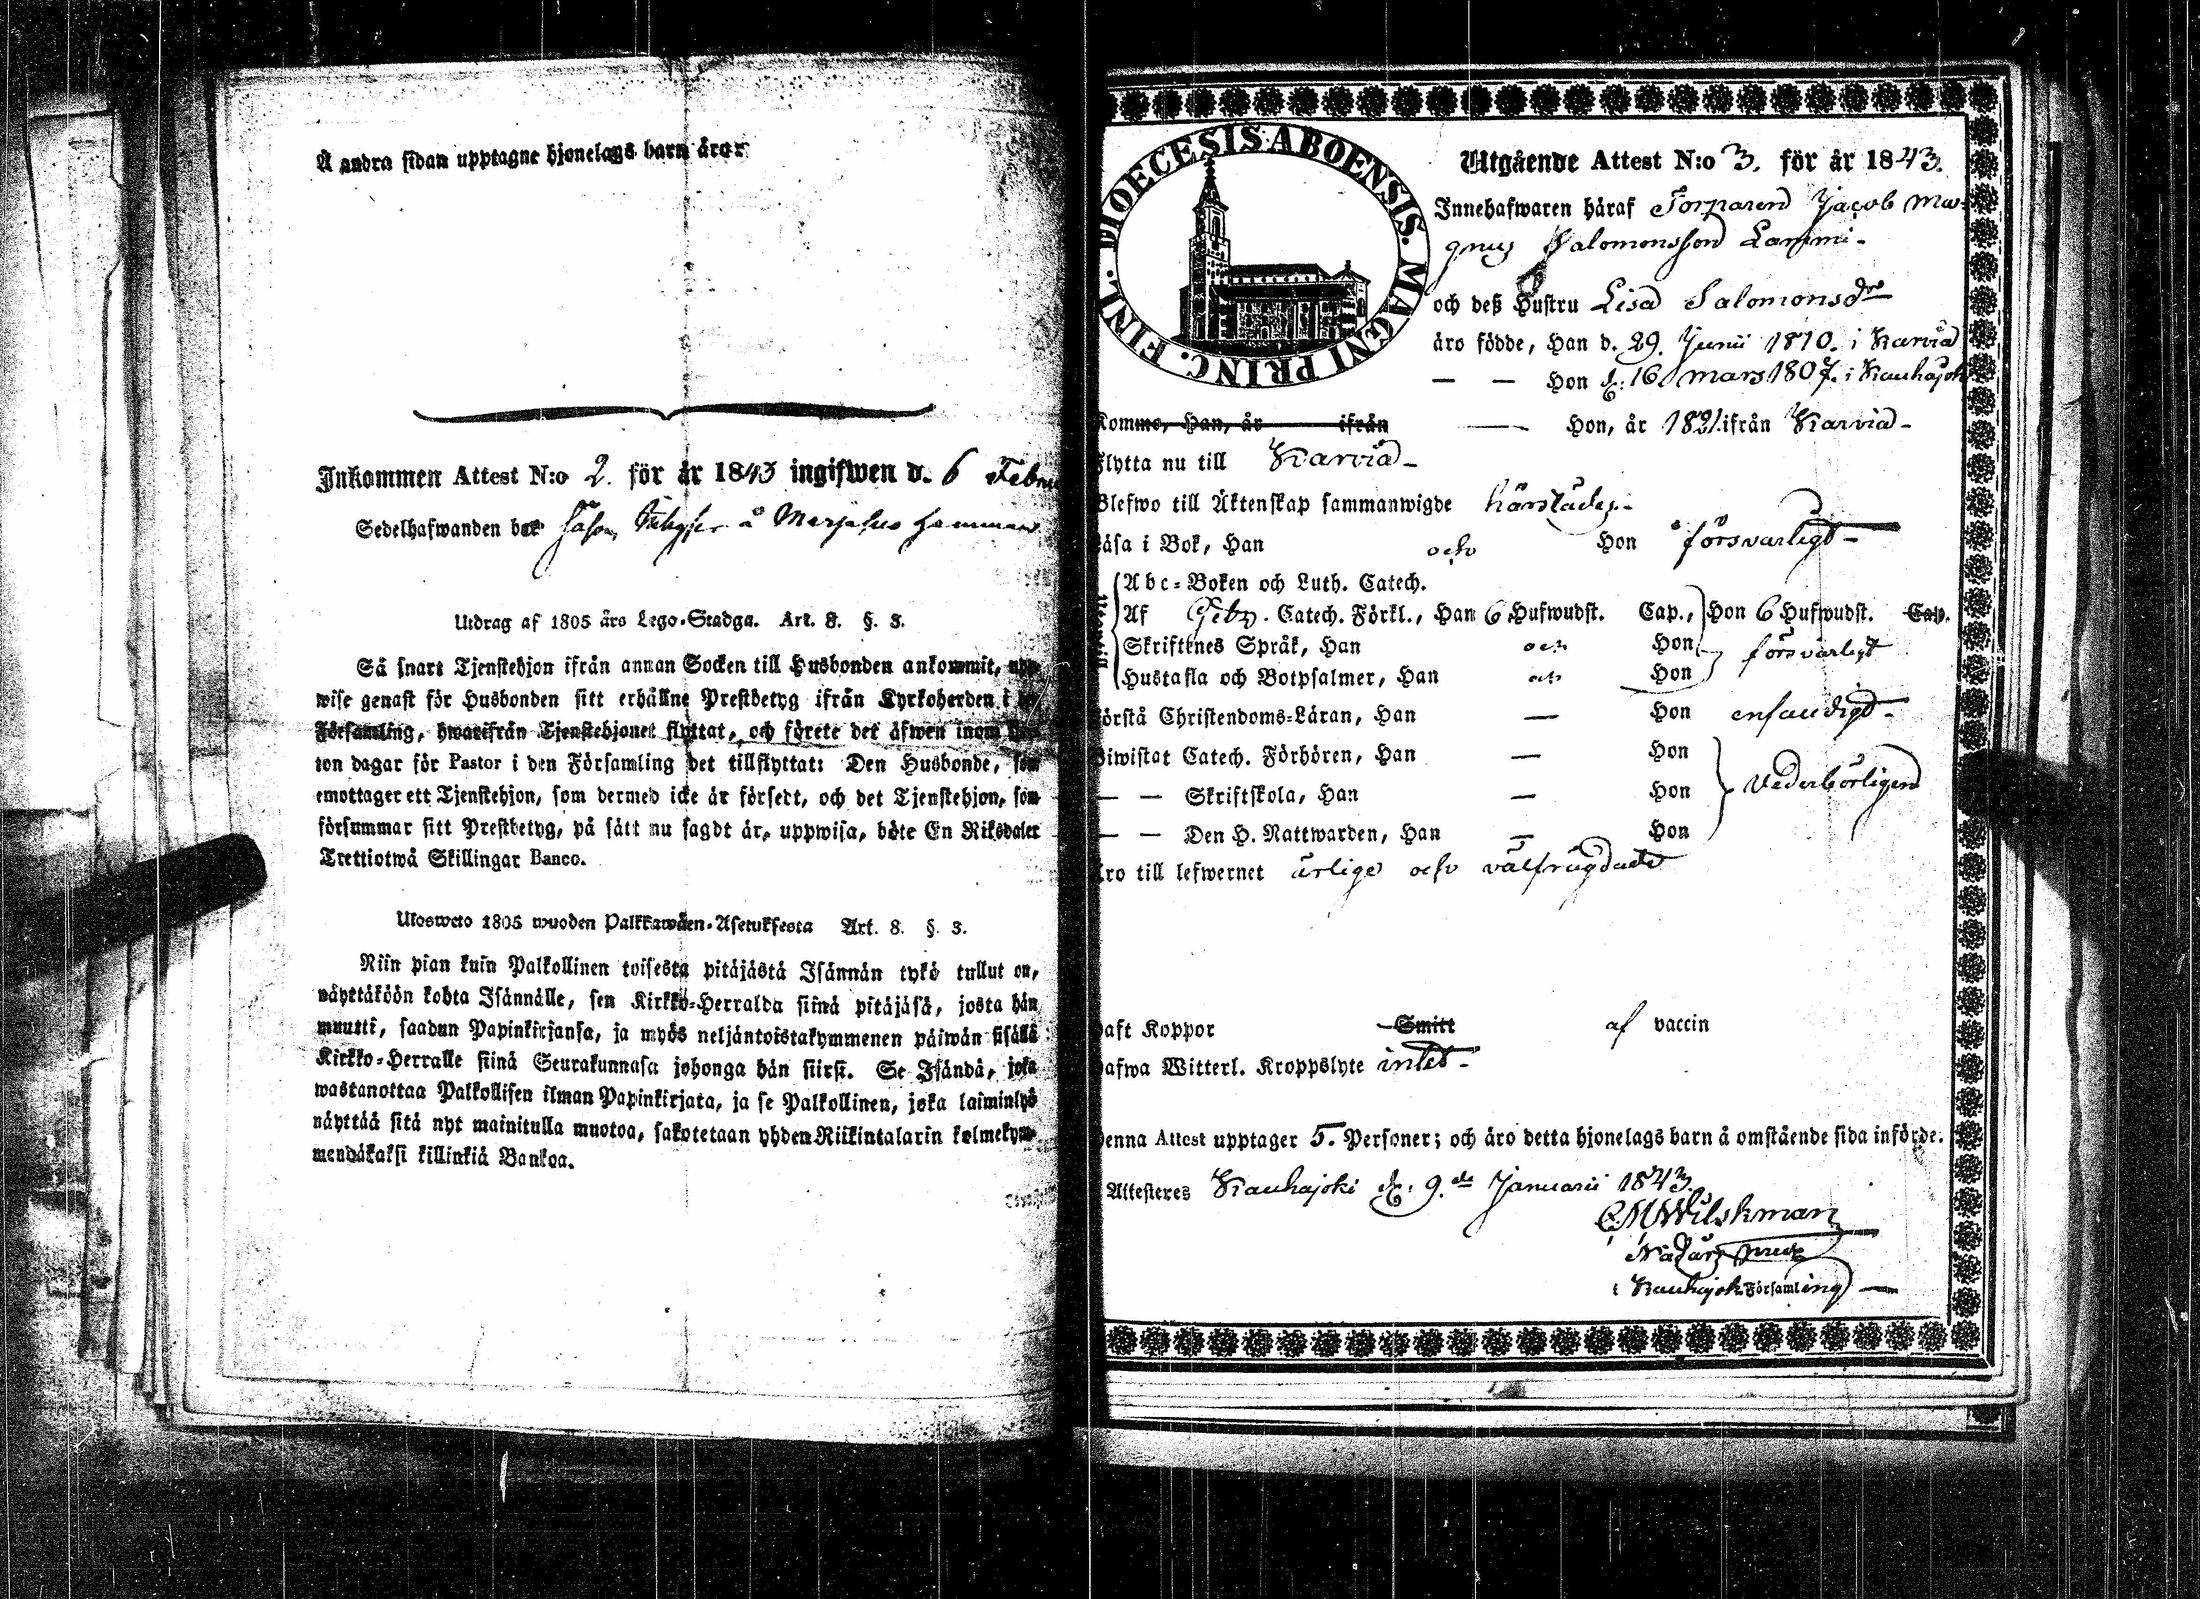 Å andra sidan upptagne hjonelags barn äro:
Inkommen Attest N:o 2. för år 1843 ingifwen d. 6 Febru
Sedelhafwanden bor å
Utdrag af 1805 års Lego-Stadga. Art. 8. §. 3.
Så snart Tjenstehjon ifrån annan Socken till Husbonden ankommit, upp-
wise genast för Husbonden sitt erhållne Prestbetyg ifrån Kyrkoherden i
Församling, hwarifrån Tjenstehjonet flyttat, och förete det äfwen inom
ton dagar för Pastor i den Församling det tillflyttat: Den Husbonde, som
emottager ett Tjenstehjon, som dermed icke är försedt, och det Tjenstehjon, som
försummar sitt Prestbetyg, på sätt nu sagdt är, uppwisa, böte En Riksdaler
Trettiotwå Skillingar Banco.
Ulosweto 1805 wuoden Palkkawäen-Asetuksesta Art. 8. §. 3.
Niin pian kuin Palkollinen toisesta pitäjästä Isännän tykö tullut on,
näyttäköön kohta Isännälle, sen Kirkko-Herralda siinä pitäjäsä, josta hän
muutti, saadun Papinkirjansa, ja myös neljäntoistakymmenen päiwän sisällä
Kirkko-Herralle siinä Seurakunnasa johonga hän siirsi. Se Isändä, joka
wastanottaa Palkollisen ilman Papinkirjata, ja se Palkollinen, joka laiminlyö
näyttää sitä nyt mainitulla muotoa, sakotetaan yhden Riikintalarin kolmekym-
mendäkaksi killinkiä Bankoa.
DIOECESIS ABOENSIS. MAGNI PRINC. FINL.
Utgående Attest N:o 3. för år 1843.
Innehafwaren häraf Torparen Jacob Ma-
gnus Salomonsson Lammi-
och deß Hustru Lisa Salomonsdr
äro födde, Han d. 29. Junii 1810. i Karvia
— — Hon d: 16 mars 1807. i Kauhajoki
Kommo, Han, år ifrån — Hon, år 1821. ifrån Karvia-
Flytta nu till Karvia-
Blefwo till Äktenskap sammanwigde härstädes-
Läsa i Bok, Han och Hon försvarligt-
Abc-Boken och Luth. Catech.
Af Catech. Förkl., Han 6 Hufwudst. Cap., Hon 6 Hufwudst. Cap.
Skriftenes Språk, Han och Hon försvarligt
Hustafla och Botpsalmer, Han och Hon
Förstå Christendoms-Läran, Han — Hon enfaldigt-
Biwistat Catech. Förhören, Han — Hon
— — Skriftskola, Han — Hon vederbörligen
— — Den H. Nattwarden, Han — Hon
Äro till lefwernet ärlige och välfrägdade
Haft Koppor Smitt af vaccin
Hafwa Witterl. Kroppslyte intet-
Denna Attest upptager 5. Personer; och äro detta hjonelags barn å omstående sida införde.
Attesteres Kauhajoki d: 9.de Januarii 1843.
Wilskman
i Kauhajoki Församling